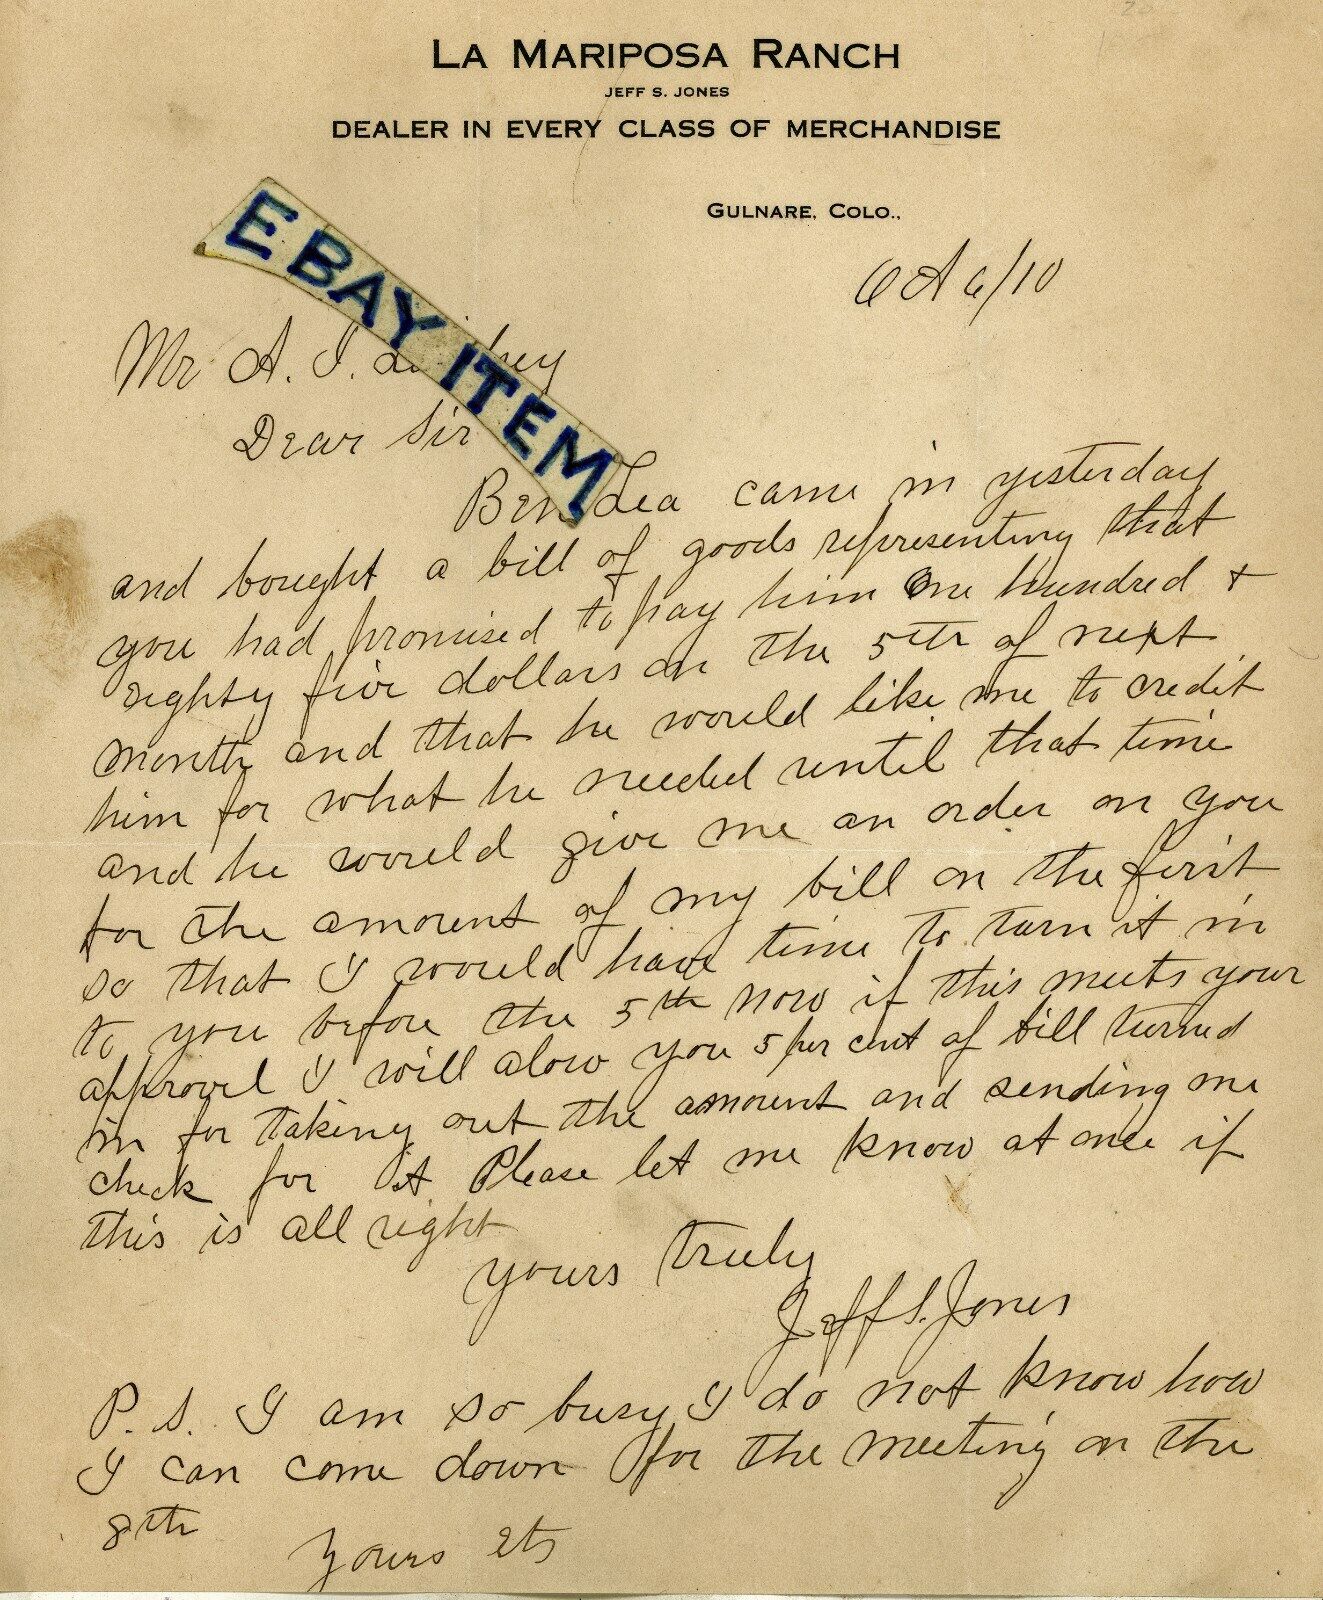 LA MARIPOSA RANCH
JEFF S. JONES
DEALER IN EVERY CLASS OF MERCHANDISE
GULNARE, COLO.,
Oct 6/10
EBAY ITEM
Mr A. I.
Dear Sir
Ben Lea came in yesterday
and bought a bill of goods representing that
you had promised to pay him One hundred +
eighty five dollars on the 5th of next
month and that he would like me to credit
him for what he needed until that time
and he would give me an order on you
for the amount of my bill on the first
so that I would have time to turn it in
to you before the 5th Now if this meets your
approvel I will alow you 5 per cent of bill turned
in for taking out the amount and sending me
check for it Please let me know at once if
this is all right
yours truly
Jeff S. Jones
P. S. I am so busy I do not know how
I can come down for the meeting on the
8th
Yours etc